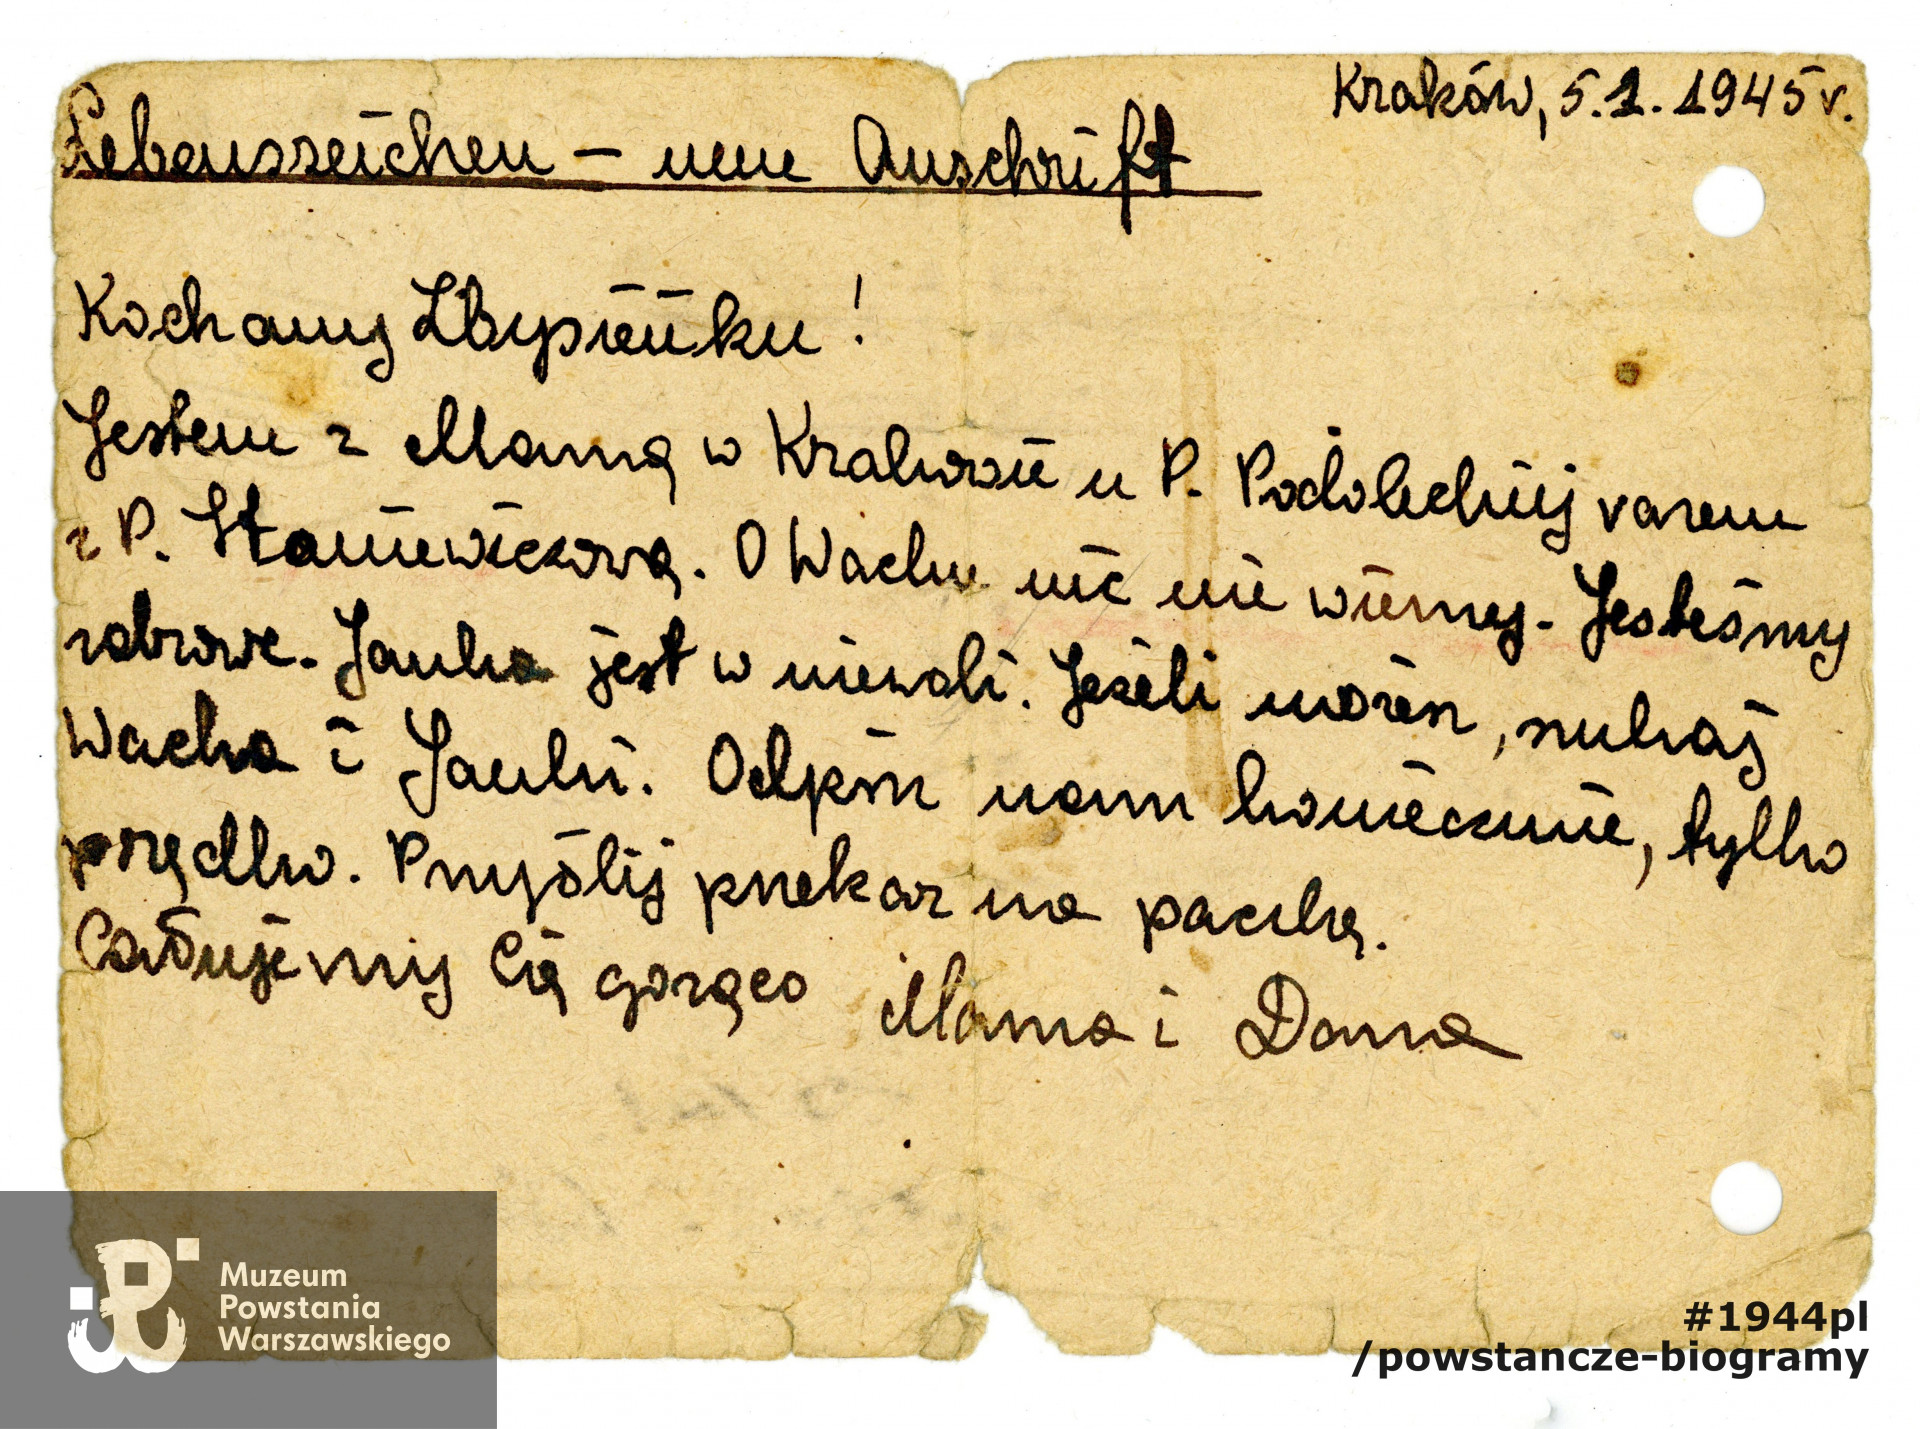 Kraków, 5.1.1945 r.
Lebenszeichen – neue Anschrift
Kochany Zbysieńku!
Jestem z Mamą w Krakowie u P. Podoleckiej razem
z P. Staniewiczową. O Wachu nic nie wiemy. Jesteśmy
zdrowe. Janka jest w niewoli. Jeżeli możesz, szukaj
Wacha i Janki. Odpisz nam koniecznie, tylko
prędko. Przyślij przekaz na paczkę.
Całujemy Cię gorąco Mama i Dana
Muzeum
Powstania
Warszawskiego
#1944pl
/powstancze-biogramy